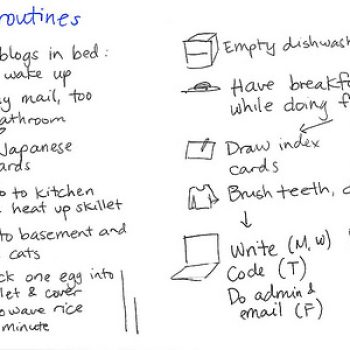 routines
blogs in bed:
wake up
mail, too
Japanese
to kitchen
heat up skillet
to basement and
cats
one egg into
& cover
rice
minute
Empty
Have
while doing
Draw index
cards
Brush teeth,
Write (M, W)
Code (T)
Do admin &
email (F)